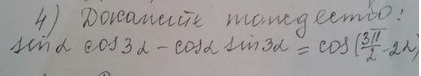 4) Докажите тождество:
sinα cos3α - cosα sin3α = cos(3π/2 - 2α)